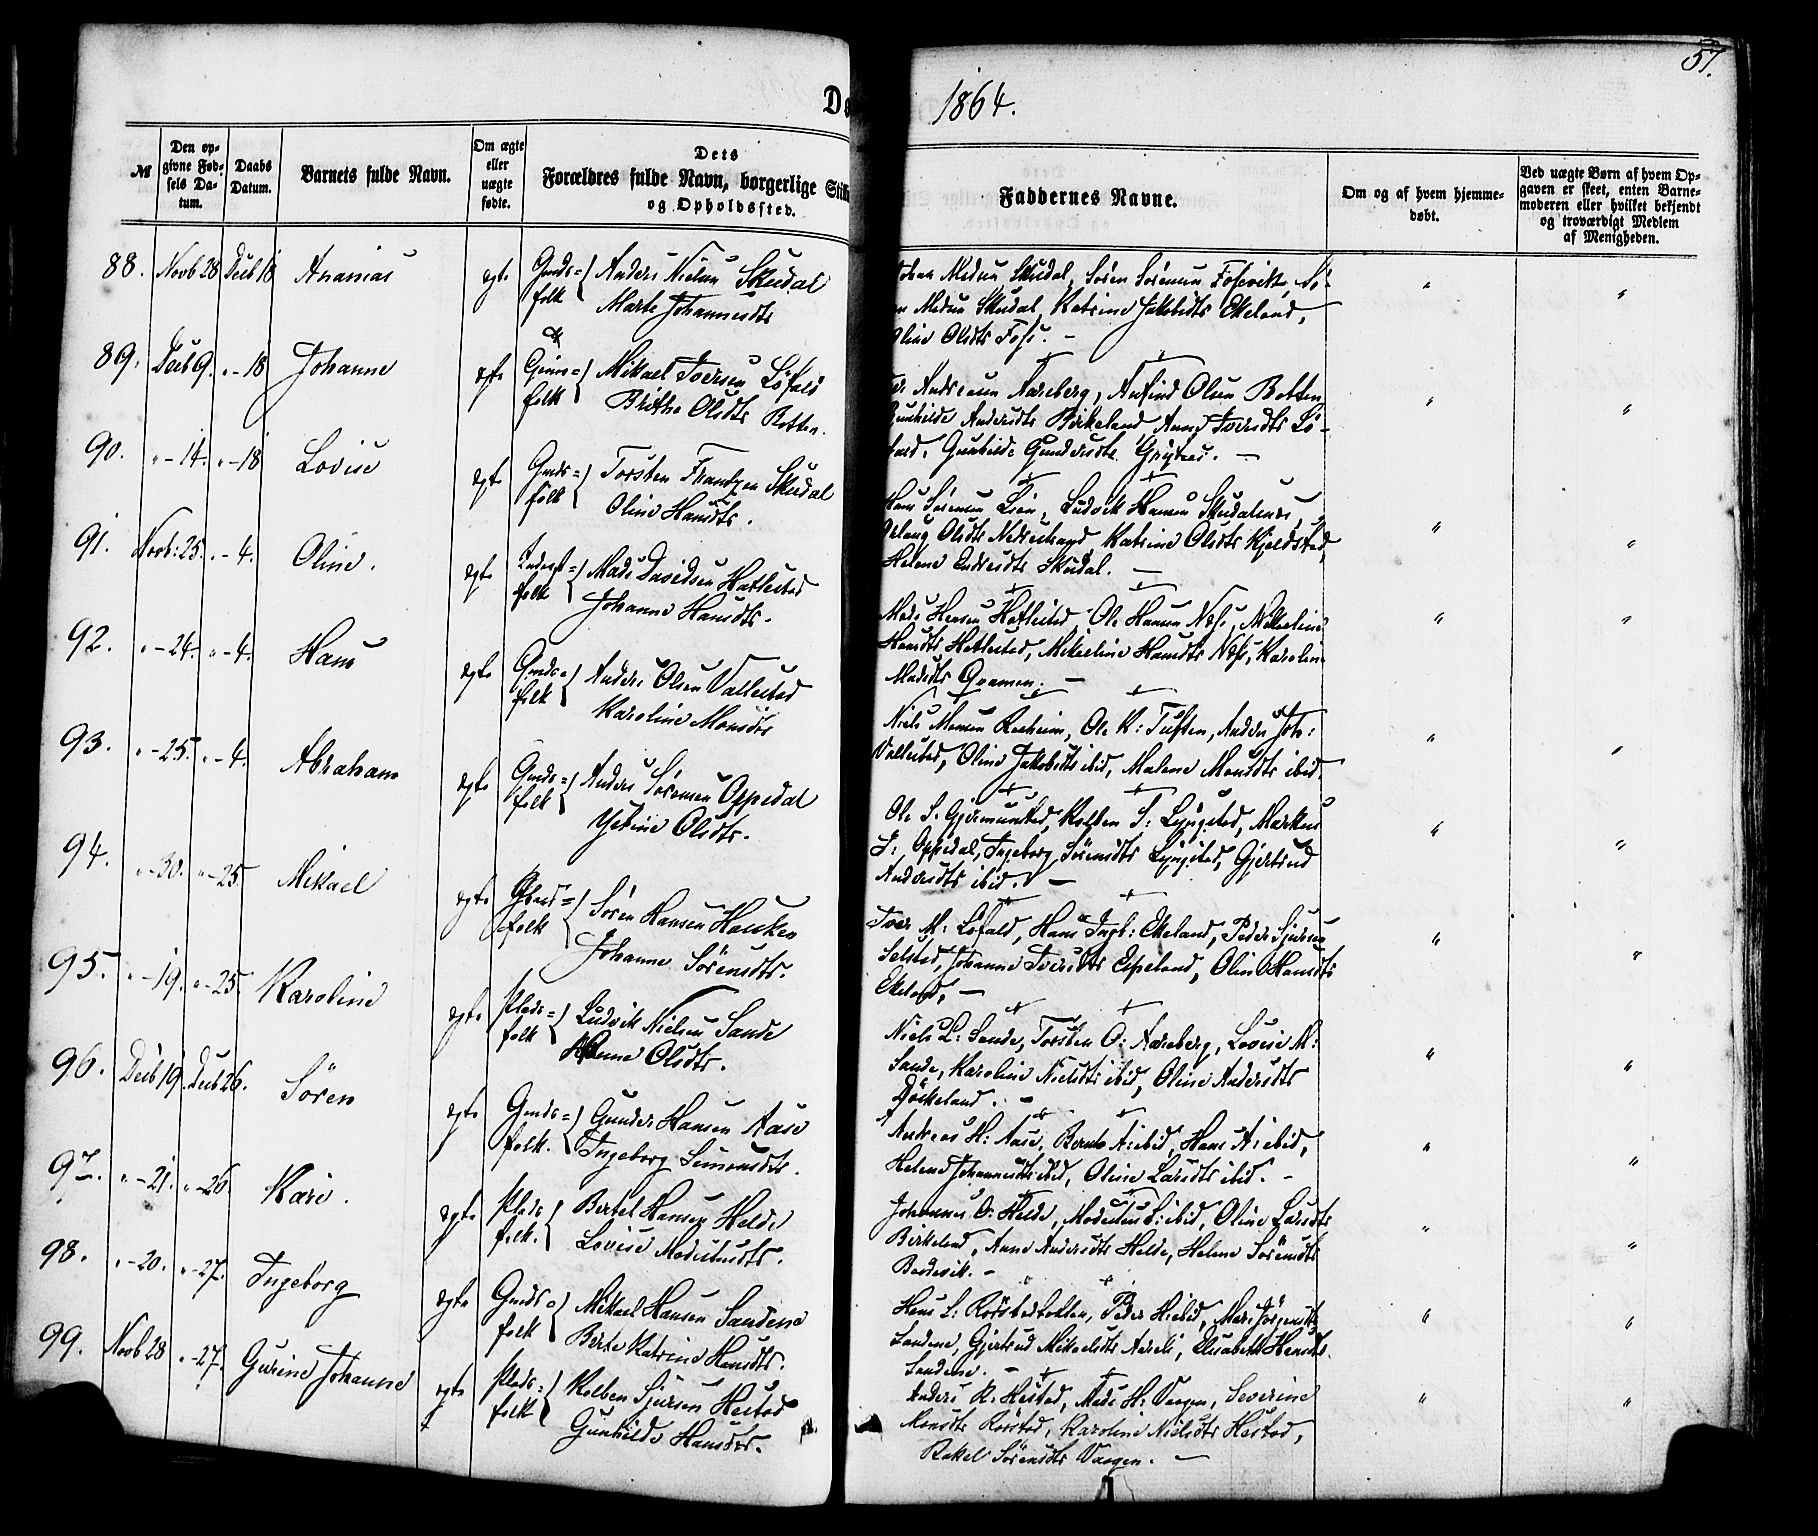 57.
1864.
Dø
№
Den op-
givne Fød-
sels Da-
tum.
Daabs
Datum.
Barnets fulde Navn.
Om ægte
eller
uægte
fødte.
Dets
Forældres fulde Navn, borgerlige Stil
og Opholdssted.
Faddernes Navne.
Om og af hvem hjemme-
døbt.
Ved uægte Børn af hvem Op-
gaven er skeet, enten Barne-
moderen eller hvilket bekjendt
og troværdigt Medlem
af Menigheden.
88. Novb 28 Decb 18 Ananias ægte Gmds= folk { Anders Nielsen Skudal
Marte Johannesdtr
Madsen Skudal, Søren Sørensen
Madsen Skudal, Katrine Jakobsdtr Ekeland,
Oline Olsdtr Foss. —
89. Decb 9. " - 18 Johanne ægte folk { Mikael Iversen Løfald
Brithe Olsdtr Botten.
Andreasen Aareberg, Anfind Olsen Botten
Gunhilde Andersdtr Birkeland Anne Iversdtr Lø-
fald, Gunhilde Gundersdtr —
90. " - 14. " - 18 Lovise ægte Gmds= folk { Torsten Frantzen Skudal
Oline Hansdtr.
Hans Sørensen Lien, Ludvik Hansen
Olsdtr Nedrestrand Katrine Olsdtr Kjeldstad,
Helene Endresdtr Skudal. —
91. Novb: 25. " - 4. Oline. ægte folk { Mads Davidsen Hatlestad
Johanne Hansdtr.
Mads Hansen Hatlestad, Ole Hansen Næss,
Hansdtr Hatlestad, Mikaeline Hansdtr Næss, Karoline
Madsdtr Qvamen. —
92. " - 24. " - 4. Hans ægte Gmds= folk { Anders Olsen Vallestad
Karoline Monsdtr
Niels Monsen Ole K: Tuften, Anders Joh:
Vallestad, Oline Jakobsdtr ibid, Malene Monsdtr ibid.
93. " - 25. " - 4. Abraham ægte Gmds= folk { Anders Sørensen Oppedal
Olsdtr.
Ole S. Gjermunstad, Kolben S: Lyngstad, Markus
J: Oppedal, Ingeborg Sørensdtr Lyngstad, Gjertrud
Andersdtr ibid. —
94. " - 30. " - 25. Mikael ægte folk { Søren Hansen Hauken
Johanne Sørensdtr.
Iver M: Løfald, Hans Ingb: Ekeland, Peder Sjursen
Selstad, Johanne Iversdtr Espeland, Oline Hansdtr
Ekeland, —
95. " - 19. " - 25. Karoline ægte Plads= folk { Ludvik Nielsen Sande
Anne Olsdtr.
Niels L: Sande, Torsten O: Aareberg, Lovise M:
Sande, Karoline Nielsdtr ibid, Oline Andersdtr
Døskeland. —
96. Decb 19. Decb 26. Søren ægte Gmds= folk. { Gunder Hansen Aase
Ingeborg Simonsdtr.
Andreas H: Aase, Bernt A: ibid, Hans A: ibid,
Helene Johannesdtr ibid, Oline Larsdtr ibid. —
97. " - 21. " - 26. Kari. ægte Plads folk. { Bertel Hansen Helde
Lovise Modestusdtr.
Johannes O: Helde, Modestus B: ibid, Oline Larsdtr
Birkeland, Anne Andersdtr Helde, Helene Sørensdtr
Bondevik. —
98. " - 20. " - 27. Ingeborg ægte Gmds= folk { Mikael Hansen Sandene
Berte Katrine Hansdtr.
Hans L: Rørstadbotten, Peder H: ibid, Mari Jörgensdtr
Sandene, Gjertrud Mikaelsdtr Elisabeth Hansdtr
Sandene. —
99. Novb 28 " - 27. Gurine Johanne ægte Plads= folk { Kolben Sjursen Hestad
Gunhilde Hansdtr.
Anders K: Hestad, Mads H: Vaagen, Severine
Monsdtr Rørstad, Karoline Nielsdtr Hestad,
Rakel Sørensdtr Vaagen. —